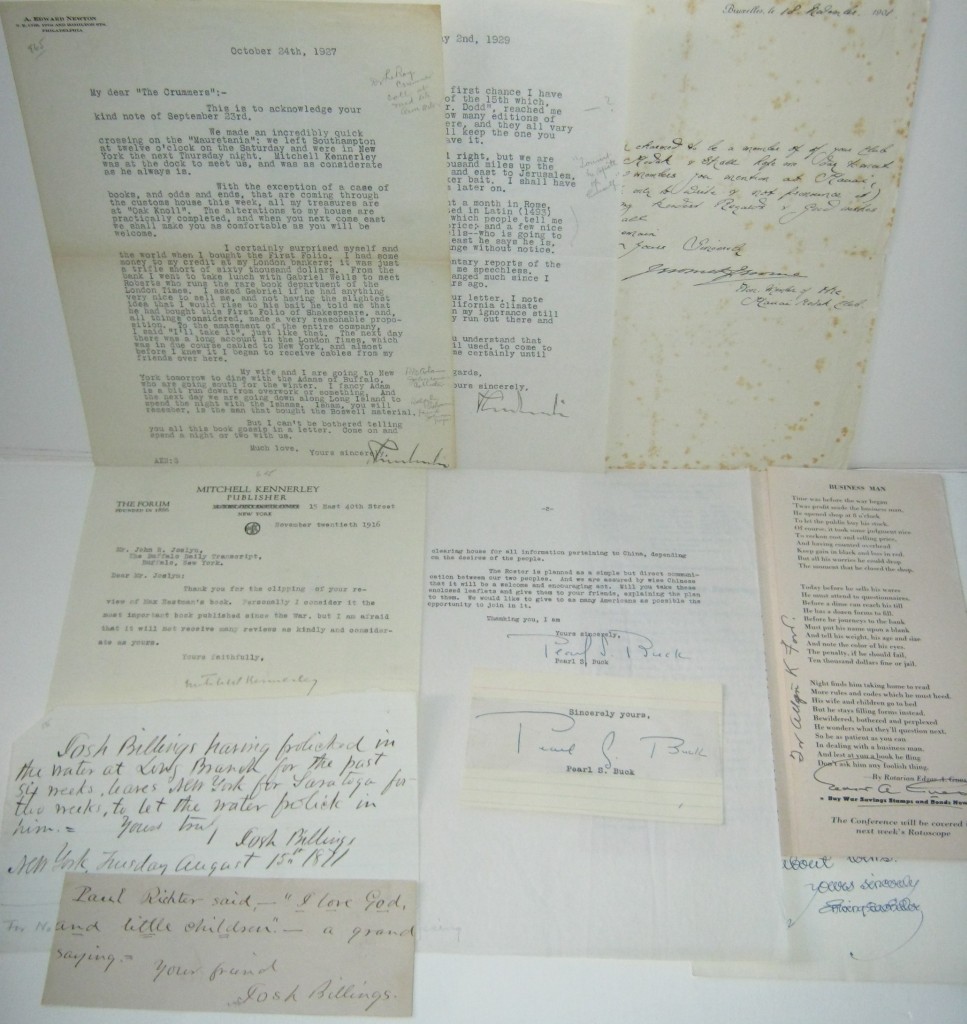 A. EDWARD NEWTON
PHILADELPHIA
October 24th, 1927
My dear "The Crummers":-
This is to acknowledge your
kind note of September 23rd.
We made an incredibly quick
crossing on the "Mauretania"; we left Southampton
at twelve o'clock on the Saturday and were in New
York the next Thursday night. Mitchell Kennerley
was at the dock to meet us, and was as considerate
as he always is.
With the exception of a case of
books, and odds and ends, that are coming through
the customs house this week, all my treasures are
at "Oak Knoll". The alterations to my house are
practically completed, and when you next come east
we shall make you as comfortable as you will be
welcome.
I certainly surprised myself and
the world when I bought the First Folio. I had some
money to my credit at my London bankers; it was just
a trifle short of sixty thousand dollars. From the
bank I went to take lunch with Gabriel Wells to meet
Roberts who runs the rare book department of the
London Times. I asked Gabriel if he had anything
very nice to sell me, and not having the slightest
idea that I would rise to his bait he told me that
he had bought this First Folio of Shakespeare, and,
all things considered, made a very reasonable propo-
sition. To the amazement of the entire company,
I said "I'll take it", just like that. The next day
there was a long account in the London Times, which
was in due course cabled to New York, and almost
before I knew it I began to receive cables from my
friends over here.
My wife and I are going to New
York tomorrow to dine with the Adams of Buffalo,
who are going south for the winter. I fancy Adam
is a bit run down from overwork or something. And
the next day we are going down along Long Island to
spend the night with the Ishams. Isham, you will
remember, is the man that bought the Boswell material.
But I can't be bothered telling
you all this book gossip in a letter. Come on and
spend a night or two with us.
Much love. Yours sincerely
AEN:S
y 2nd, 1929
first chance I have
of the 15th which,
r. Dodd", reached me
ow many editions of
ere, and they all vary
ll keep the one you
ave it.
l right, but we are
ousand miles up the
and east to Jerusalem,
ker bait. I shall have
s later on.
t a month in Rome,
ed in Latin (1493)
which people tell me
rice; and a few nice
lls--who is going to
east he says he is,
nge without notice.
ntary reports of the
me speechless.
anged much since I
rs ago.
ur letter, I note
lifornia climate
n my ignorance still
y run out there and
u understand that
ll used, to come to
me certainly until
gards,
ours sincerely,
Bruxelles, le 18
charmed to be a member of your Club
MITCHELL KENNERLEY
PUBLISHER
THE FORUM
15 East 40th Street
NEW YORK
November twentieth 1916
Mr. John R. Joslyn,
The Buffalo Daily Transcript,
Buffalo, New York.
Dear Mr. Joslyn:
Thank you for the clipping of your re-
view of Max Eastman's book. Personally I consider it the
most important book published since the War, but I am afraid
that it will not receive many reviews as kindly and consider-
ate as yours.
Yours faithfully,
Mitchell Kennerley
-2-
clearing house for all information pertaining to China, depending
on the desires of the people.
The Roster is planned as a simple but direct communi-
cation between our two peoples. And we are assured by wise Chinese
that it will be a welcome and encouraging act. Will you take these
enclosed leaflets and give them to your friends, explaining the plan
to them. We would like to give to as many Americans as possible the
opportunity to join in it.
Thanking you, I am
Yours sincerely,
Pearl S. Buck
Pearl S. Buck
Sincerely yours,
Pearl S. Buck
Pearl S. Buck
BUSINESS MAN
Time was before the war began
'Twas profit made the business man,
He opened shop at 8 o'clock
To let the public buy his stock.
Of course, it took some judgment nice
To reckon cost and selling price,
And having counted overhead
Keep gain in black and loss in red.
But all his worries he could drop
The moment that he closed the shop.
Today before he sells his wares
He must attend to questionnaires.
Before a dime can reach his till
He has a dozen forms to fill.
Before he journeys to the bank
Must put his name upon a blank
And tell his weight, his age and size
And note the color of his eyes.
The penalty, if he should fail,
Ten thousand dollars fine or jail.
Night finds him taking home to read
More rules and codes which he must heed.
His wife and children go to bed
But he stays filling forms instead.
Bewildered, bothered and perplexed
He wonders what they'll question next.
So be as patient as you can
In dealing with a business man,
And lest at you a book he fling
Don't ask him any foolish thing.
—By Rotarian Edgar A. Guest
Buy War Savings Stamps and Bonds Now
The Conference will be covered
next week's Rotoscope
Josh Billings having frolicked in
the water at Long Branch for the past
six weeks, leaves New York for Saratoga for
two weeks, to let the water frolick in
him.=
Yours truly
Josh Billings
New York, Tuesday August 15th 1871
Paul Richter said,— "I love God,
and little children".— a grand
saying.=
Your friend
Josh Billings.
yours sincerely